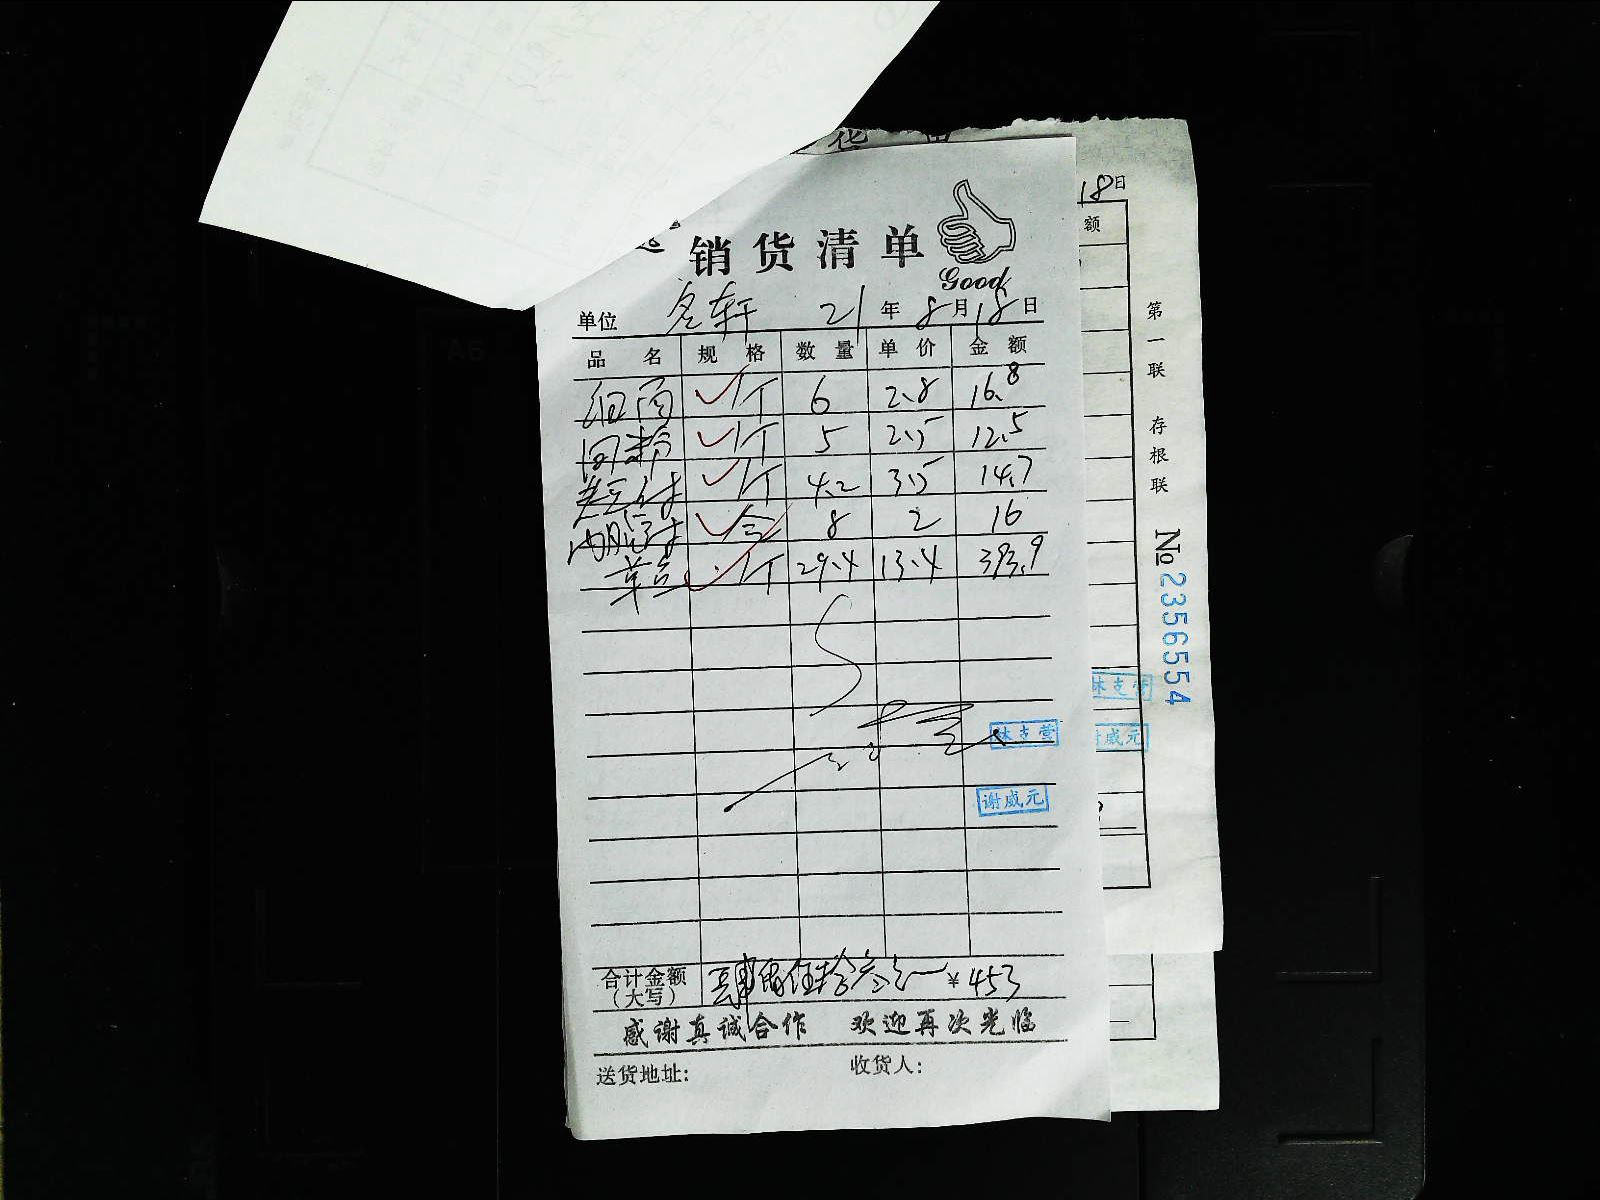 销货清单
Good
单位 轩 21年8月18日
品名 规格 数量 单价 金额
个 6 2.8 16.8
个 5 2.5 12.5
个 4.2 3.5 14.7
8 2 16
个 29.4 13.4 393.9
林支营
谢威元
合计金额（大写） 肆佰伍拾叁元 ¥453
感谢真诚合作 欢迎再次光临
送货地址: 收货人:
18日
额
第一联 存根联
№2356554
林支营
谢威元